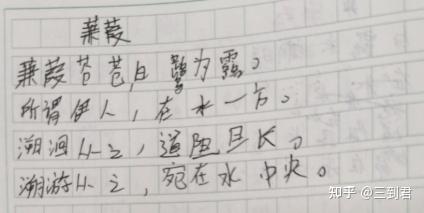 蒹葭
蒹葭苍苍,白为霜。
所谓伊人,在水一方。
溯洄从之,道阻且长。
溯游从之,宛在水中央。
知乎 @三到君